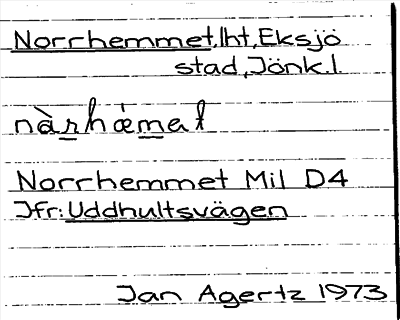 Norrhemmet, lht, Eksjö
stad, Jönk.l.
nàrhémet
Norrhemmet Mil D4
Jfr: Uddhultsvägen
Jan Agertz 1973